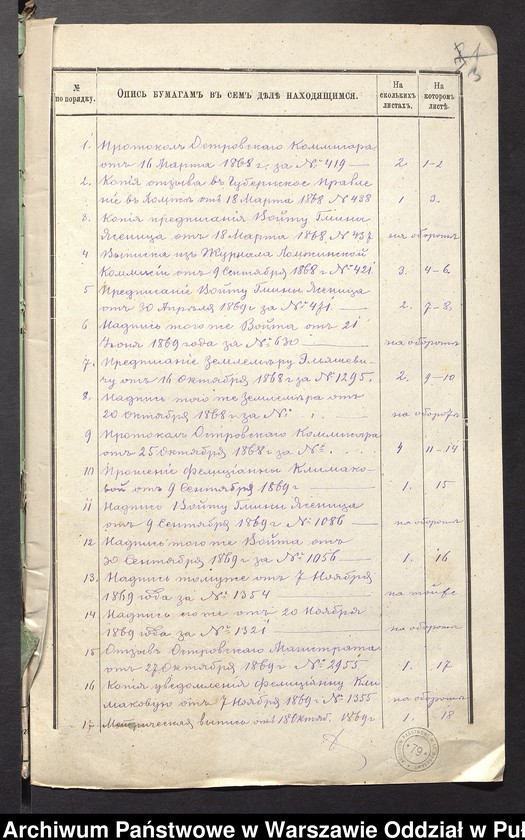 № по порядку.
Опись бумагамъ въ семъ дѣлѣ находящимся.
На сколькихъ листахъ.
На которомъ листѣ.
1. Протоколъ Островскаго Коммисара
отъ 16 Марта 1868 г. за № 419 — 2. 1-2
2. Копія отзыва въ Губернское Правле
ніе въ Ломжѣ отъ 18 Марта 1868 № 438 1 3.
3. Копія предписанія Войту Гмины
Ясеница отъ 18 Марта 1868 № 437 на оборотѣ
4 Выписка изъ Журнала Ломжинской
Коммисіи отъ 9 Сентября 1868 г № 421 3. 4-6.
5 Предписаніе Войту Гмины Ясеница
отъ 30 Апрѣля 1869 г за № 471 — 2. 7-8.
6 Надпись того же Войта отъ 21
Іюня 1869 года за № 630 — на оборотѣ
7. Предписаніе Землемѣру
чу отъ 16 Октября 1868 г за № 1295. 2. 9-10
8. Надпись того же Землемѣра отъ
20 Октября 1868 г за № — на оборотѣ
9 Протоколъ Островскаго Коммисара
отъ 25 Октября 1868 г за №. 4 11-14
10 Прошеніе Фелиціанны Климако-
вой отъ 9 Сентября 1869 г — 1. 15
11 Надпись Войту Гмины Ясеница
отъ 9 Сентября 1869 г № 1086 — на оборотѣ
12 Надпись того же Войта отъ
30 Сентября 1869 г за № 1056 — 1. 16
13. Надпись тому же отъ 7 Ноября
1869 года за № 1354 — на
14 Надпись его же отъ 20 Ноября
1869 года за № 1321 — на оборотѣ
15 Отзывъ Островскаго Магистрата
отъ 27 Октября 1869 г № 2955 1. 17
16 Копія увѣдомленія Фелиціанну Кли
маковую отъ 7 Ноября 1869 г № 1355 на оборотѣ
17 Метрическая выпись отъ 18 Октяб. 1869 г 1. 18
79
Archiwum Państwowe w Warszawie Oddział w Pu